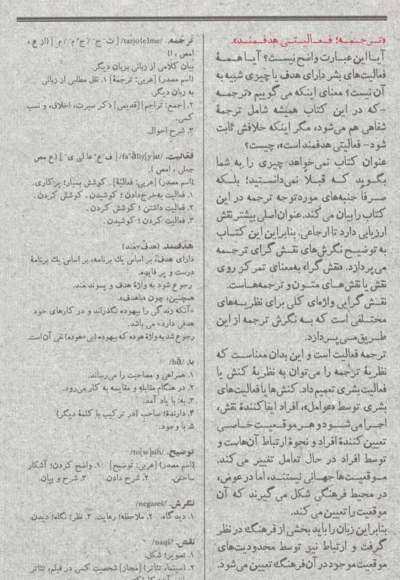 «ترجمه؛ فعالیتی هدفمند».
آیا این عبارت واضح نیست؟ آیا همهٔ
فعالیت‌های بشر دارای هدف یا چیزی شبیه به
آن نیست؟ معنای اینکه می‌گوییم «ترجمه
-که در این کتاب همیشه شامل ترجمهٔ
شفاهی هم می‌شود، مگر اینکه خلافش ثابت
شود- فعالیتی هدفمند است»، چیست؟
عنوان کتاب نمی‌خواهد چیزی را به شما
بگوید که قبلاً نمی‌دانستید؛ بلکه
صرفاً جنبه‌های مورد توجه ترجمه در این
کتاب را بیان می‌کند. عنوان اصلی بیشتر نقش
ارزیابی دارد تا ارجاعی. بنابراین این کتاب
به توضیح نگرش‌های نقش‌گرای ترجمه
می‌پردازد. «نقش‌گرا» به‌معنای تمرکز روی
نقش یا نقش‌های متون و ترجمه‌هاست.
نقش‌گرایی واژه‌ای کلی برای نظریه‌های
مختلفی است که به نگرش ترجمه از این
طریق می‌پردازد.
ترجمه فعالیت است و این بدان معناست که
نظریهٔ ترجمه را می‌توان به نظریهٔ کنش یا
فعالیت بشری تعمیم داد. کنش‌ها یا فعالیت‌های
بشری توسط «عوامل»، افراد ایفاکنندهٔ نقش،
اجرا می‌شود و هر موقعیت خاصی
تعیین‌کنندهٔ افراد و نحوهٔ ارتباط آن‌هاست و
توسط افراد در حال تعامل تغییر می‌کند.
موقعیت‌ها جهانی نیستند، اما در عوض،
در محیط فرهنگی شکل می‌گیرند که آن
موقعیت را تعیین می‌کند.
بنابراین زبان را باید بخشی از فرهنگ در نظر
گرفت و ارتباط نیز توسط محدودیت‌های
موقعیت موجود در آن فرهنگ تعیین می‌شود.
ترجمه.
بیان کلامی از زبانی بزبان دیگر.
(اسم مصدر) [عربی: ترجمة] ۱. نقل مطلبی از زبانی
به زبان دیگر.
۲. [جمع: تراجم] [قدیمی] ذکر سیرت، اخلاق، و نسب
کسی.
۳. شرح احوال.
فعالیت.
(اسم مصدر) [عربی: فعالیّة] . کوشش بسیار؛ پرکاری.
۱. فعالیت به‌خرج‌دادن ؛ کوشیدن . کوشش کردن .
۲. فعالیت داشتن ؛ کوشش کردن .
۳. فعالیت کردن ؛ کوشیدن .
هدفمند. (هدف+مند)
دارای هدف، بر اساس یك برنامه، بر اساس یك برنامهٔ
درست و پر فایده.
رجوع شود به واژهٔ هدف و پسوند مند.
همچنین، چون «باهدف».
«آنکه زندگی را بیهوده نگذراند و در کارهای خود
هدفی دارد» می باشد.
رجوع شد به واژهٔ هوده که بیهوده (بی+هوده) نفی آن است.
۱. همراهی و مصاحبت را می‌رساند.
۲. در هنگام مقابله و مقایسه به کار می‌رود.
۳. به؛ با یاد آمد.
۴. دارندهٔ؛ صاحبِ (در ترکیب با کلمهٔ دیگر)
۵. با وجود.
توضیح.
(اسم مصدر) [عربی: توضیح] ۱. واضح کردن؛ آشکار
ساختن. ۲. شرح دادن. ۳. شرح و بیان.
نگرش. /negareš/
۱. دیدگاه. ۲. ملاحظه؛ رعایت. ۳. نظر؛ نگاه؛ دیدن.
نقش. /naqš/
۱. تصویر؛ شکل.
۲. (سینما، تئاتر) [مجاز] شخصیت کسی در فیلم، تئاتر